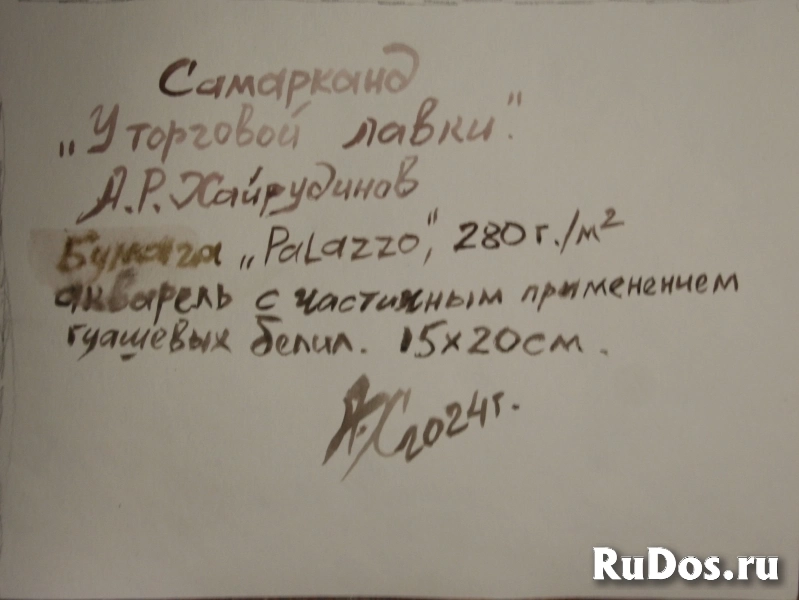 Самарканд
„У торговой лавки".
А.Р. Хайрудинов
Бумага „PaLazzo", 280 г./м²
акварель с частичным применением
гуашевых белил. 15х20см.
А.Х 2024г.
RuDos.ru